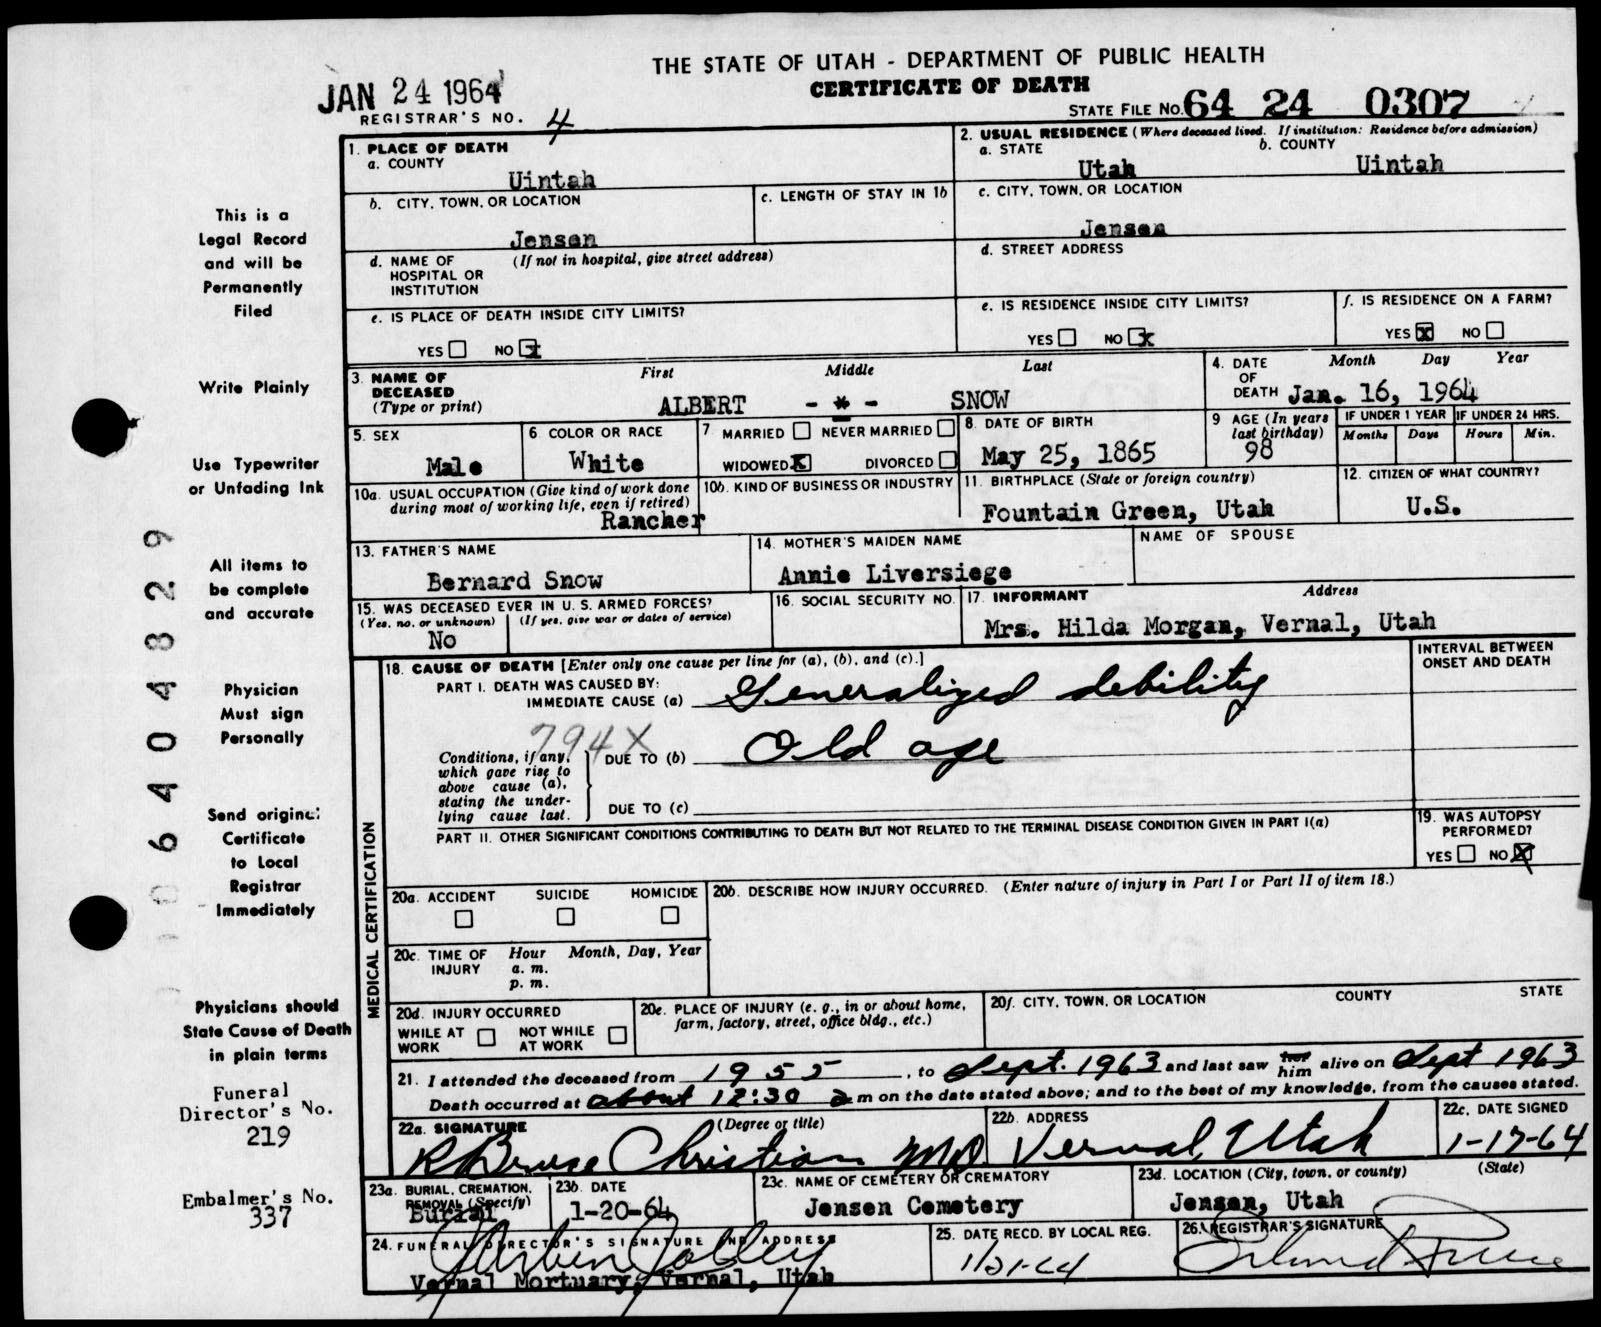 THE STATE OF UTAH - DEPARTMENT OF PUBLIC HEALTH
CERTIFICATE OF DEATH
JAN 24 1964
REGISTRAR'S NO. 4
STATE FILE NO. 64 24 0307
1. PLACE OF DEATH
a. COUNTY
Uintah
2. USUAL RESIDENCE (Where deceased lived. If institution: Residence before admission)
a. STATE b. COUNTY
Utah Uintah
b. CITY, TOWN, OR LOCATION
Jensen
c. LENGTH OF STAY IN 1b
c. CITY, TOWN, OR LOCATION
Jensen
d. NAME OF HOSPITAL OR INSTITUTION
(If not in hospital, give street address)
d. STREET ADDRESS
e. IS PLACE OF DEATH INSIDE CITY LIMITS?
YES NO X
e. IS RESIDENCE INSIDE CITY LIMITS?
YES NO X
f. IS RESIDENCE ON A FARM?
YES X NO
3. NAME OF DECEASED
(Type or print)
First Middle Last
ALBERT - * - SNOW
4. DATE OF DEATH
Month Day Year
Jan. 16, 1964
5. SEX
Male
6. COLOR OR RACE
White
7 MARRIED NEVER MARRIED
WIDOWED X DIVORCED
8. DATE OF BIRTH
May 25, 1865
9 AGE (In years last birthday)
98
IF UNDER 1 YEAR IF UNDER 24 HRS.
Months Days Hours Min.
10a. USUAL OCCUPATION (Give kind of work done during most of working life, even if retired)
Rancher
10b. KIND OF BUSINESS OR INDUSTRY
11. BIRTHPLACE (State or foreign country)
Fountain Green, Utah
12. CITIZEN OF WHAT COUNTRY?
U.S.
13. FATHER'S NAME
Bernard Snow
14. MOTHER'S MAIDEN NAME
Annie Liversiege
NAME OF SPOUSE
15. WAS DECEASED EVER IN U. S. ARMED FORCES?
(Yes, no, or unknown) (If yes, give war or dates of service)
No
16. SOCIAL SECURITY NO.
17. INFORMANT Address
Mrs. Hilda Morgan, Vernal, Utah
MEDICAL CERTIFICATION
18. CAUSE OF DEATH [Enter only one cause per line for (a), (b), and (c).]
INTERVAL BETWEEN ONSET AND DEATH
PART I. DEATH WAS CAUSED BY:
IMMEDIATE CAUSE (a) Generalized debility
794X
Conditions, if any, which gave rise to above cause (a), stating the underlying cause last.
DUE TO (b) Old age
DUE TO (c)
PART II. OTHER SIGNIFICANT CONDITIONS CONTRIBUTING TO DEATH BUT NOT RELATED TO THE TERMINAL DISEASE CONDITION GIVEN IN PART I(a)
19. WAS AUTOPSY PERFORMED?
YES NO X
20a. ACCIDENT SUICIDE HOMICIDE
20b. DESCRIBE HOW INJURY OCCURRED. (Enter nature of injury in Part I or Part II of item 18.)
20c. TIME OF INJURY Hour Month, Day, Year
a. m.
p. m.
20d. INJURY OCCURRED
WHILE AT WORK NOT WHILE AT WORK
20e. PLACE OF INJURY (e. g., in or about home, farm, factory, street, office bldg., etc.)
20f. CITY, TOWN, OR LOCATION COUNTY STATE
21. I attended the deceased from 1955, to Sept. 1963 and last saw her him alive on Sept 1963
Death occurred at about 12:30 a m on the date stated above; and to the best of my knowledge, from the causes stated.
22a. SIGNATURE (Degree or title)
R Bruce Christian M.D.
22b. ADDRESS
Vernal, Utah
22c. DATE SIGNED
1-17-64
23a. BURIAL, CREMATION, REMOVAL (Specify)
Burial
23b. DATE
1-20-64
23c. NAME OF CEMETERY OR CREMATORY
Jensen Cemetery
23d. LOCATION (City, town, or county) (State)
Jensen, Utah
24. FUNERAL DIRECTOR'S SIGNATURE AND ADDRESS
Vernal Mortuary, Vernal, Utah
25. DATE RECD. BY LOCAL REG.
1/21-64
26. REGISTRAR'S SIGNATURE
This is a
Legal Record
and will be
Permanently
Filed
Write Plainly
Use Typewriter
or Unfading Ink
All items to
be complete
and accurate
Physician
Must sign
Personally
Send original
Certificate
to Local
Registrar
Immediately
Physicians should
State Cause of Death
in plain terms
Funeral
Director's No.
219
Embalmer's No.
337
6404829